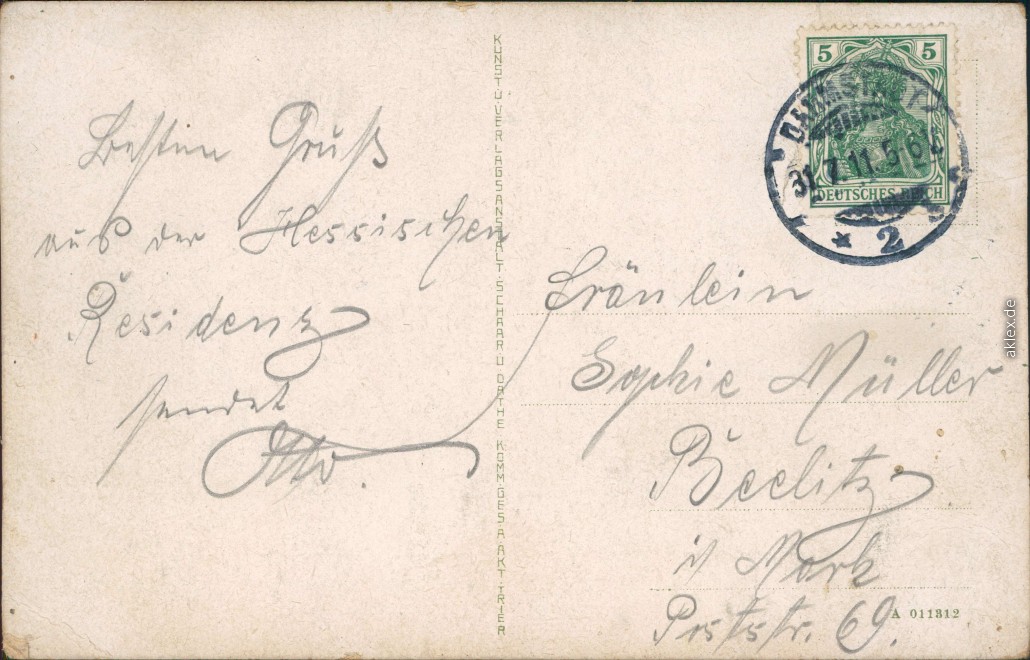 Besten Gruß
aus der Hessischen
Residenz
sendet
Otto.
KUNST U. VERLAGSANSTALT SCHAAR U DATHE KOMM.GES.A.AKT.TRIER
5 5
DEUTSCHES REICH
DARMSTADT
31.7.11.5-6
* 2
Fräulein
Sophie Müller
Beelitz
i/ Mark
Poststr. 69.
A 011312
aklex.de